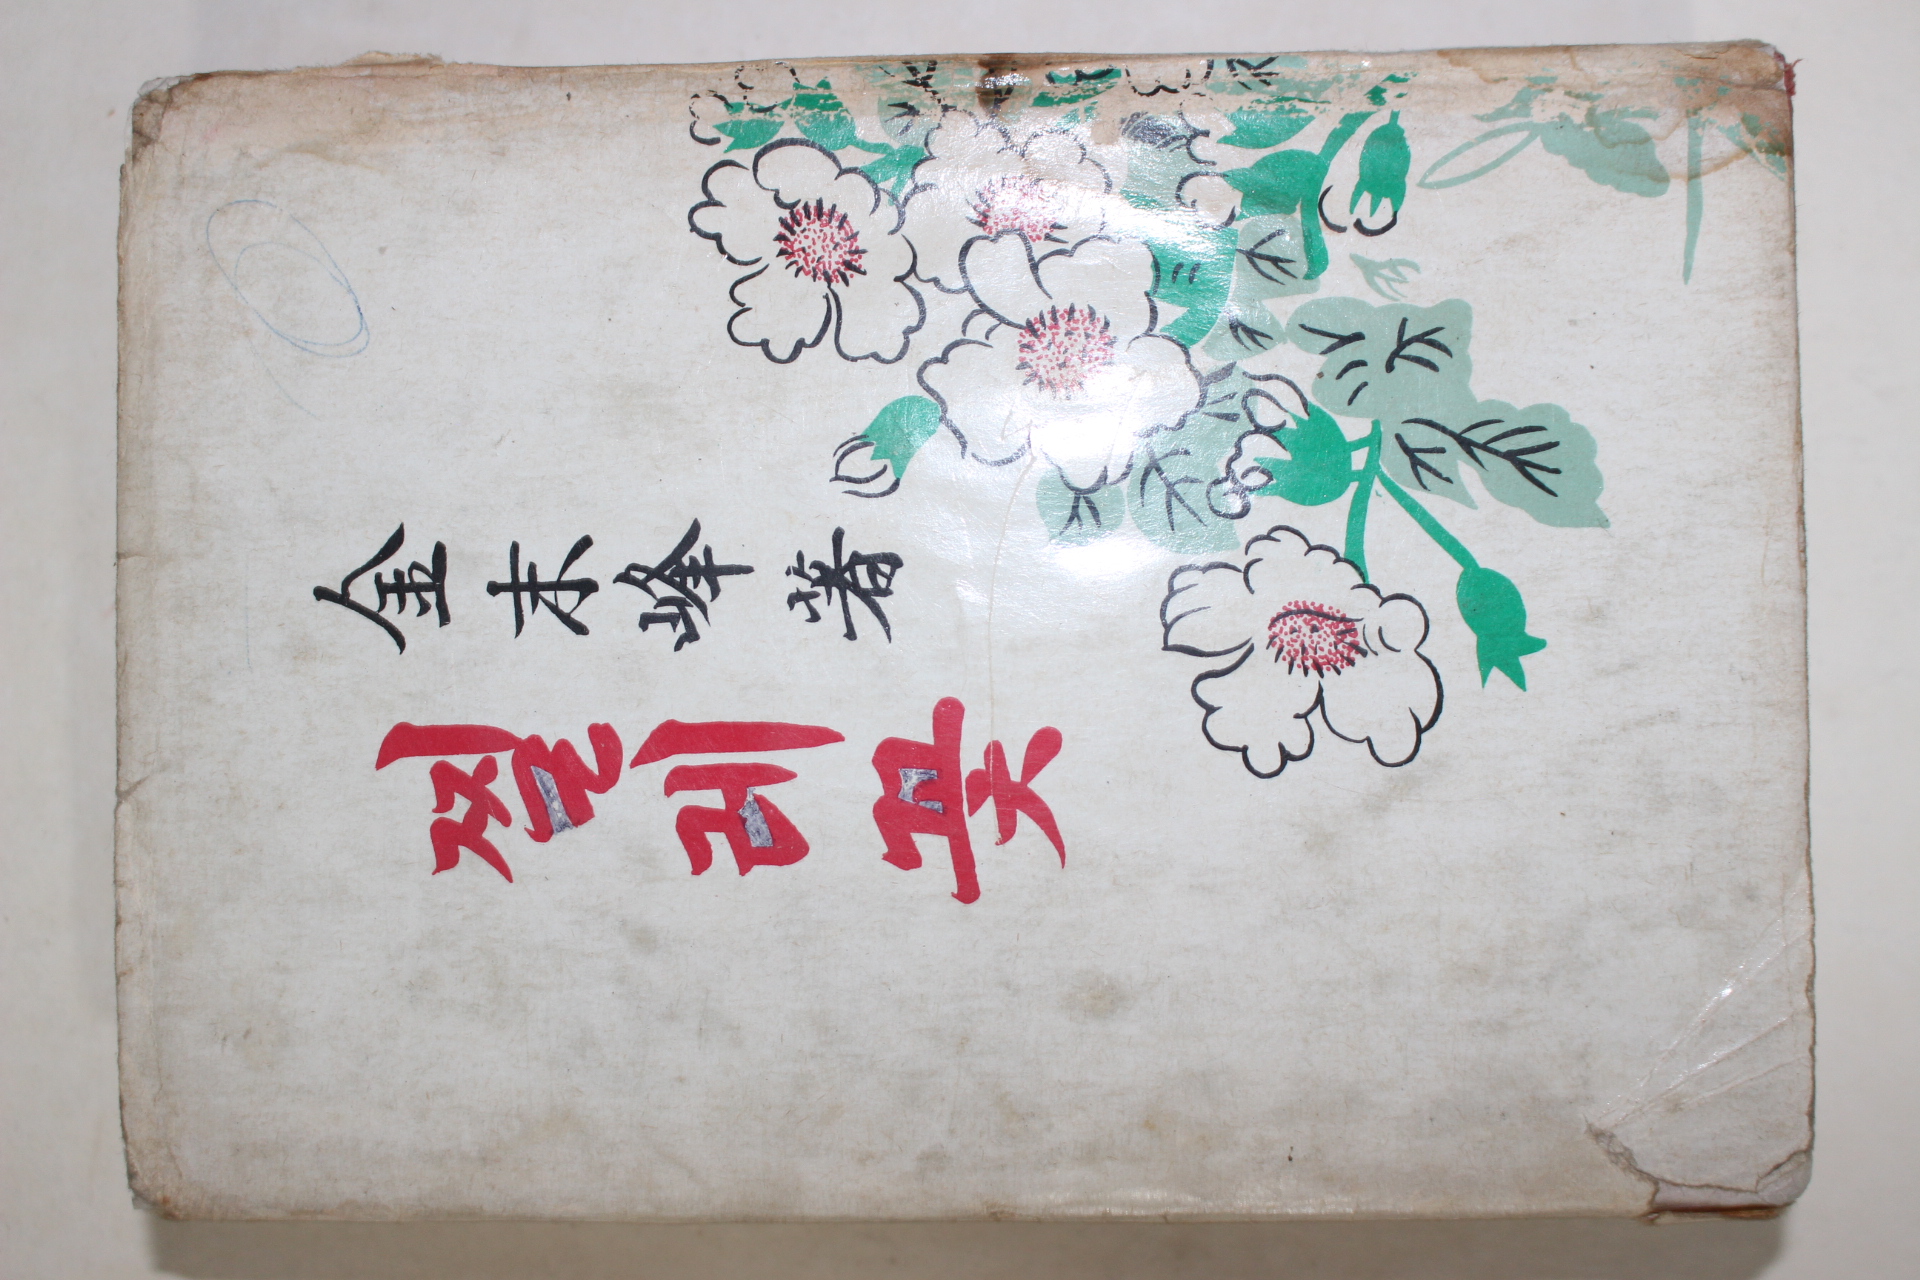 金末峰 著
찔레꽃